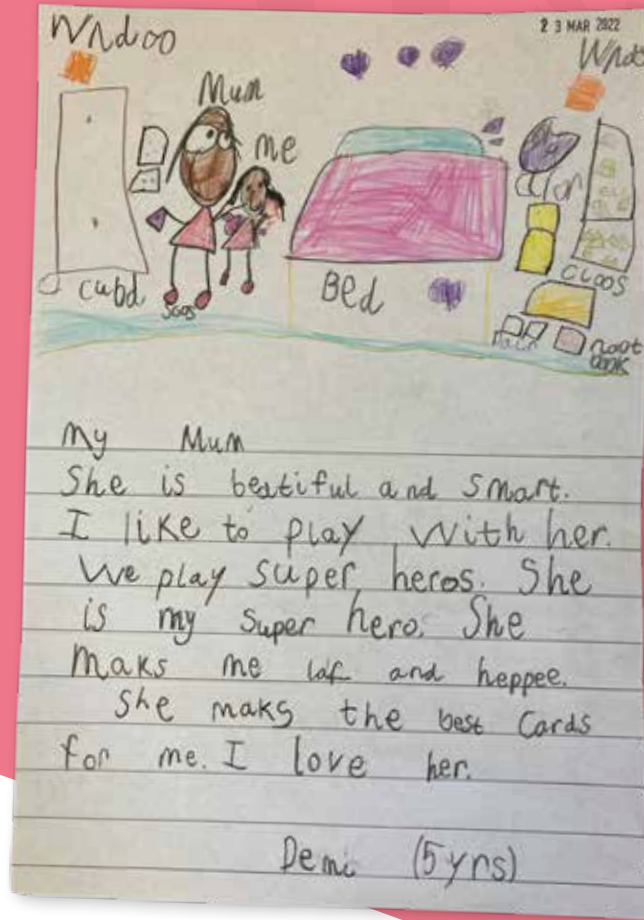 23 MAR 2022
Wndoo
Mum
me
cubd
Bed
cloos
My Mum
She is beatiful and smart.
I like to play with her.
We play super heros. She
is my super hero. She
maks me laf and heppee.
She maks the best Cards
for me. I love her.
Demi (5 yrs)